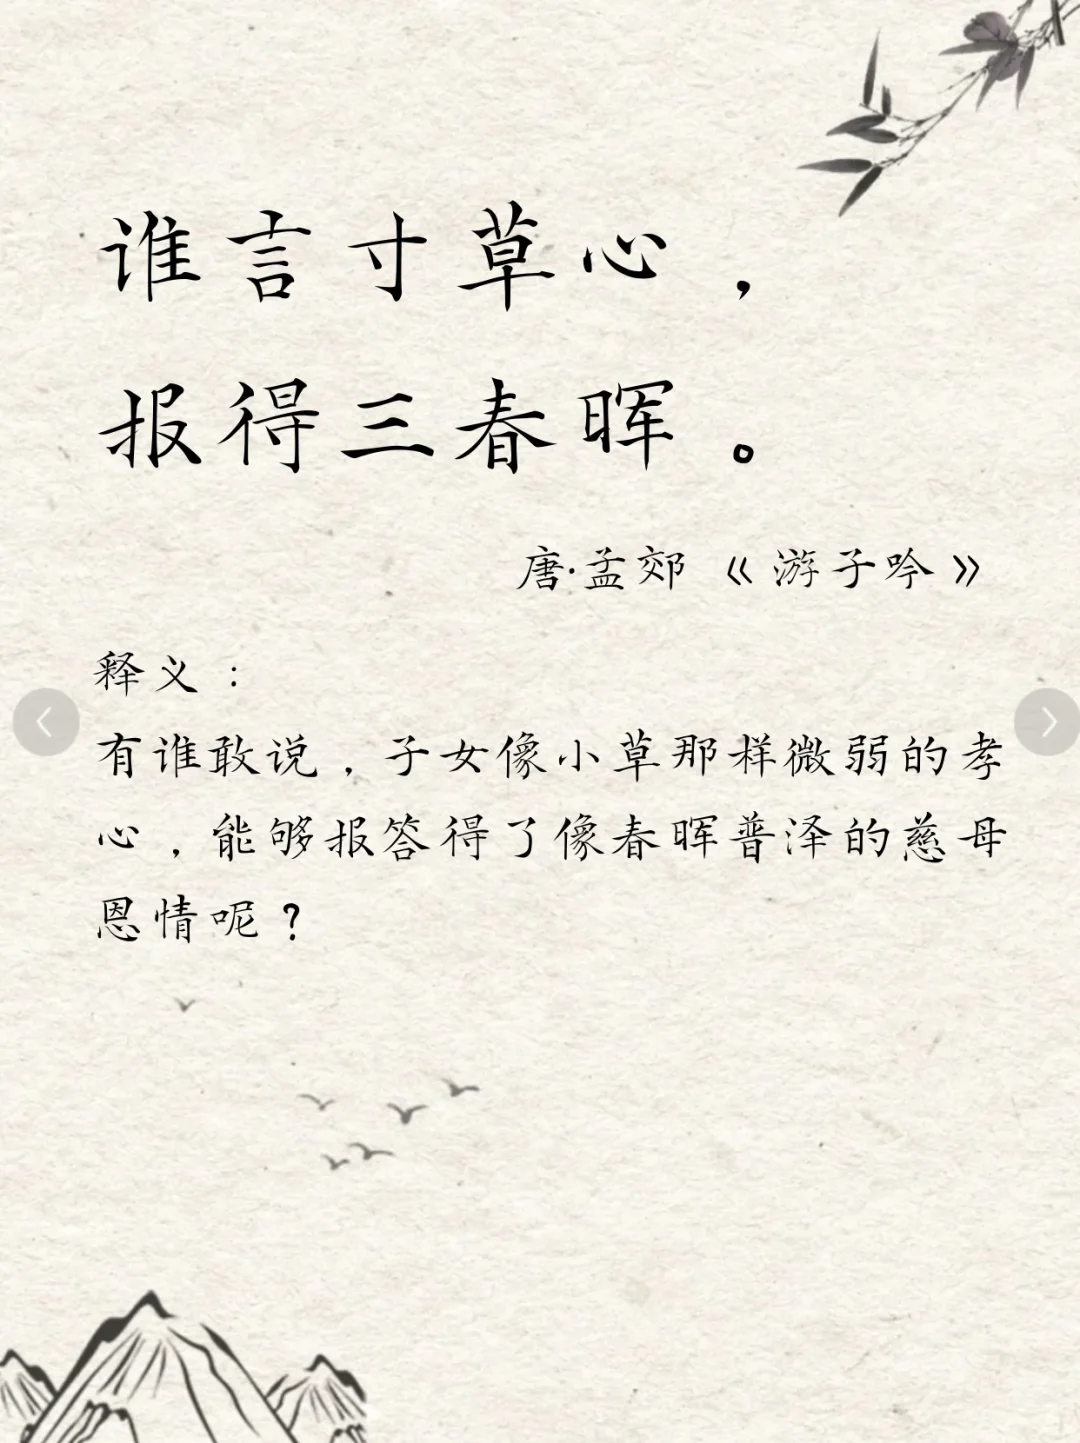 谁言寸草心，
报得三春晖。
唐·孟郊《游子吟》
释义：
有谁敢说，子女像小草那样微弱的孝
心，能够报答得了像春晖普泽的慈母
恩情呢？